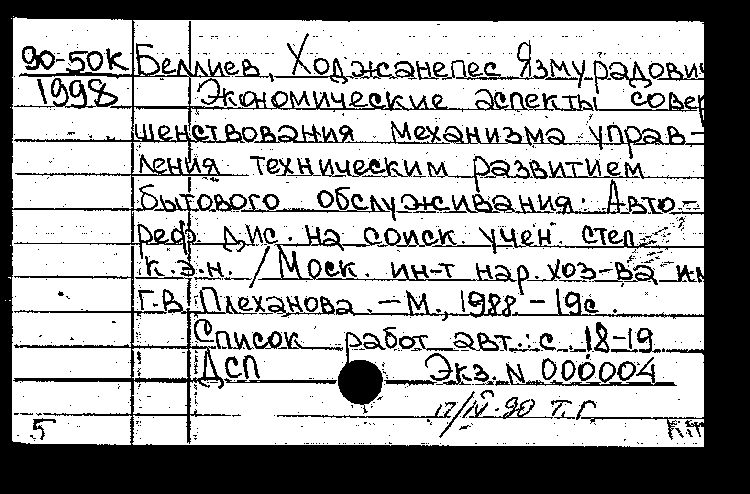 90-50К Беллиев, Ходжанепес Язмурадович
1998 Экономические аспекты совер
шенствования механизма управ-
ления техническим развитием
бытового обслуживания: Авто-
реф. дис. на соиск. учен. степ.
к.э.н. / Моск. ин-т нар. хоз-ва им
Г.В. Плеханова. - М., 1988 - 19с.
Список работ авт.: с. 18-19
ДСП Экз. N 000004
90 Т.Г.
5